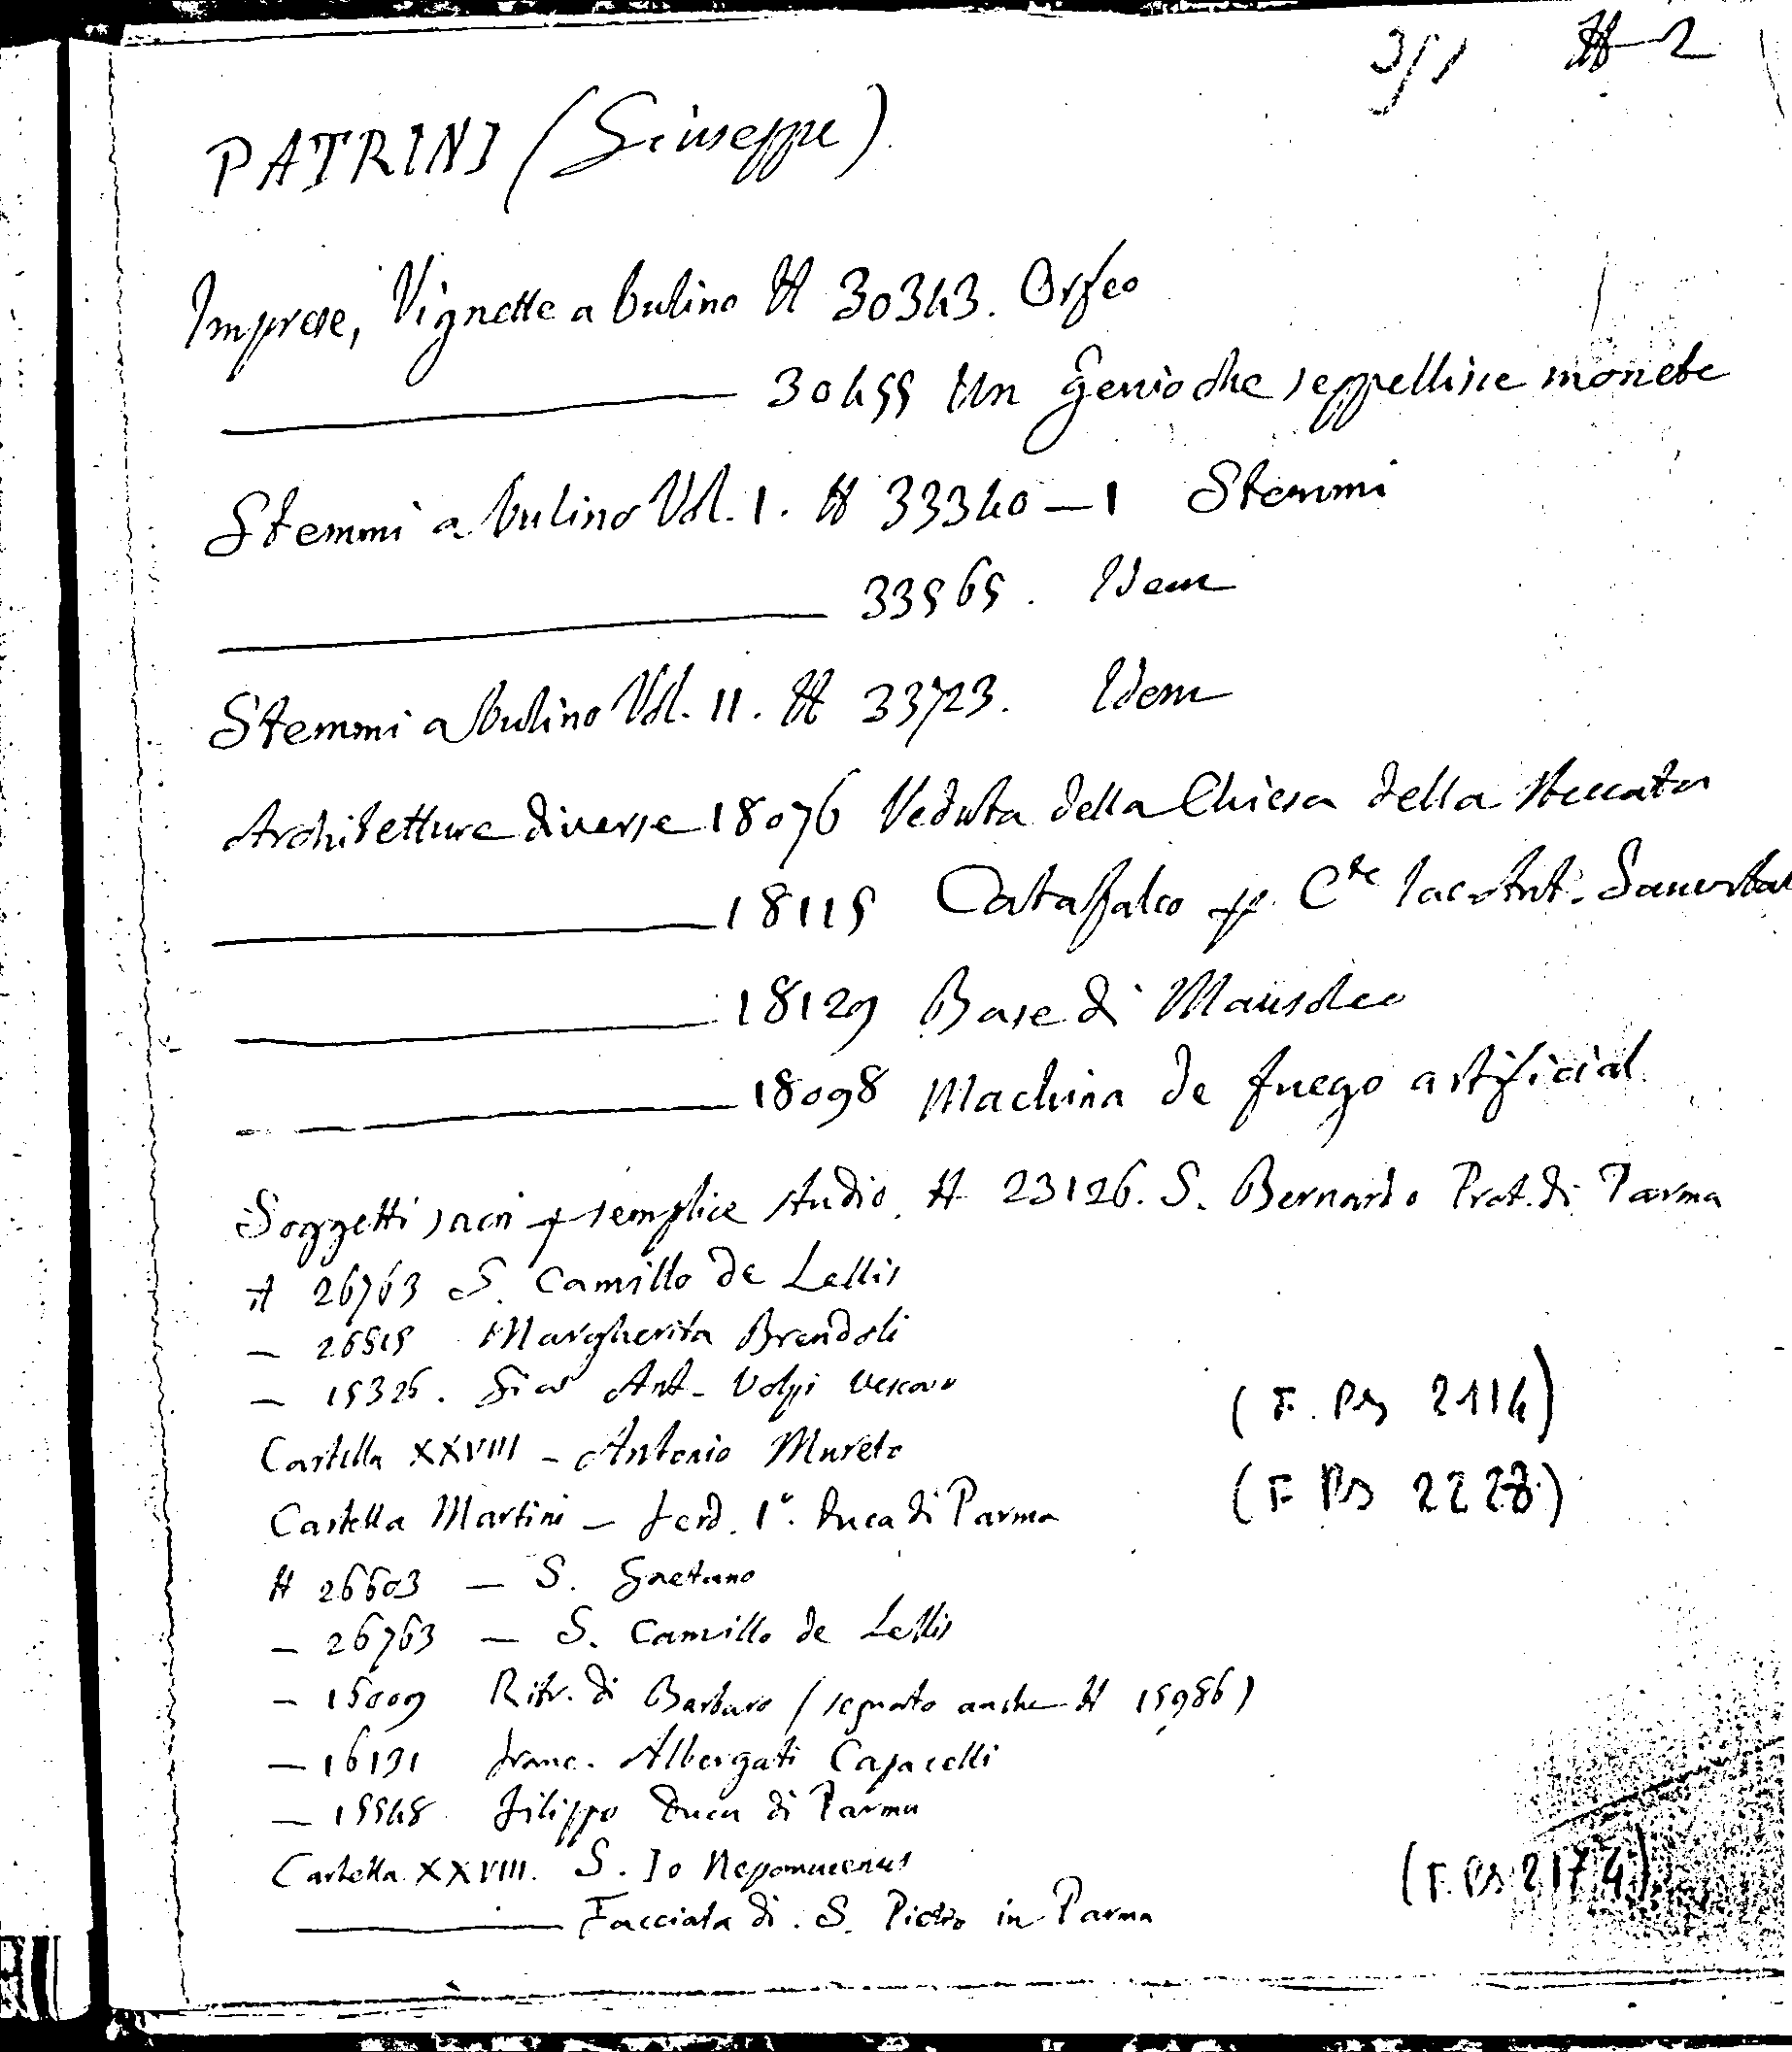 3/1 H-2
PATRINI (Giuseppe)
Imprese, Vignette a bulino H 30343. Orfeo
——— 30455 Un Genio che seppellisce monete
Stemmi a bulino Vol. I. H 33340-1 Stemmi
——— 33565. Idem
Stemmi a bulino Vol. II. H 33723. Idem
Architetture diverse 18076 Veduta della Chiesa della Steccata
——— 18115 Catafalco p. C.te Iac. Ant.
——— 18129 Base di Mausoleo
——— 18098 Machina de fuego artificial
Soggetti sacri p semplice studio. H 23126. S. Bernardo Prot. di Parma
H 26763 S. Camillo de Lellis
— 26515 Margherita Brendoli
— 15326. Gio Ant. Volpi vescovo
Cartella XXVIII - Antonio Mureto (F. Ps 2114)
Cartella Martini - Ferd. I°. Duca di Parma (F Ps 2228)
H 26603 — S. Gaetano
— 26763 — S. Camillo de Lellis
— 15009 Ritr. di Barbaro (segnato anche H 15986)
— 16131 Franc. Albergati Capacelli
— 15548 Filippo Duca di Parma
Cartella XXVIII. S. Io Nepomucenus (F. Ps 2174)
——— Facciata di S. Pietro in Parma